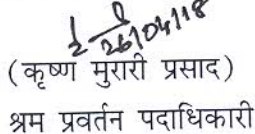 26/04/18
(कृष्ण मुरारी प्रसाद)
श्रम प्रवर्तन पदाधिकारी